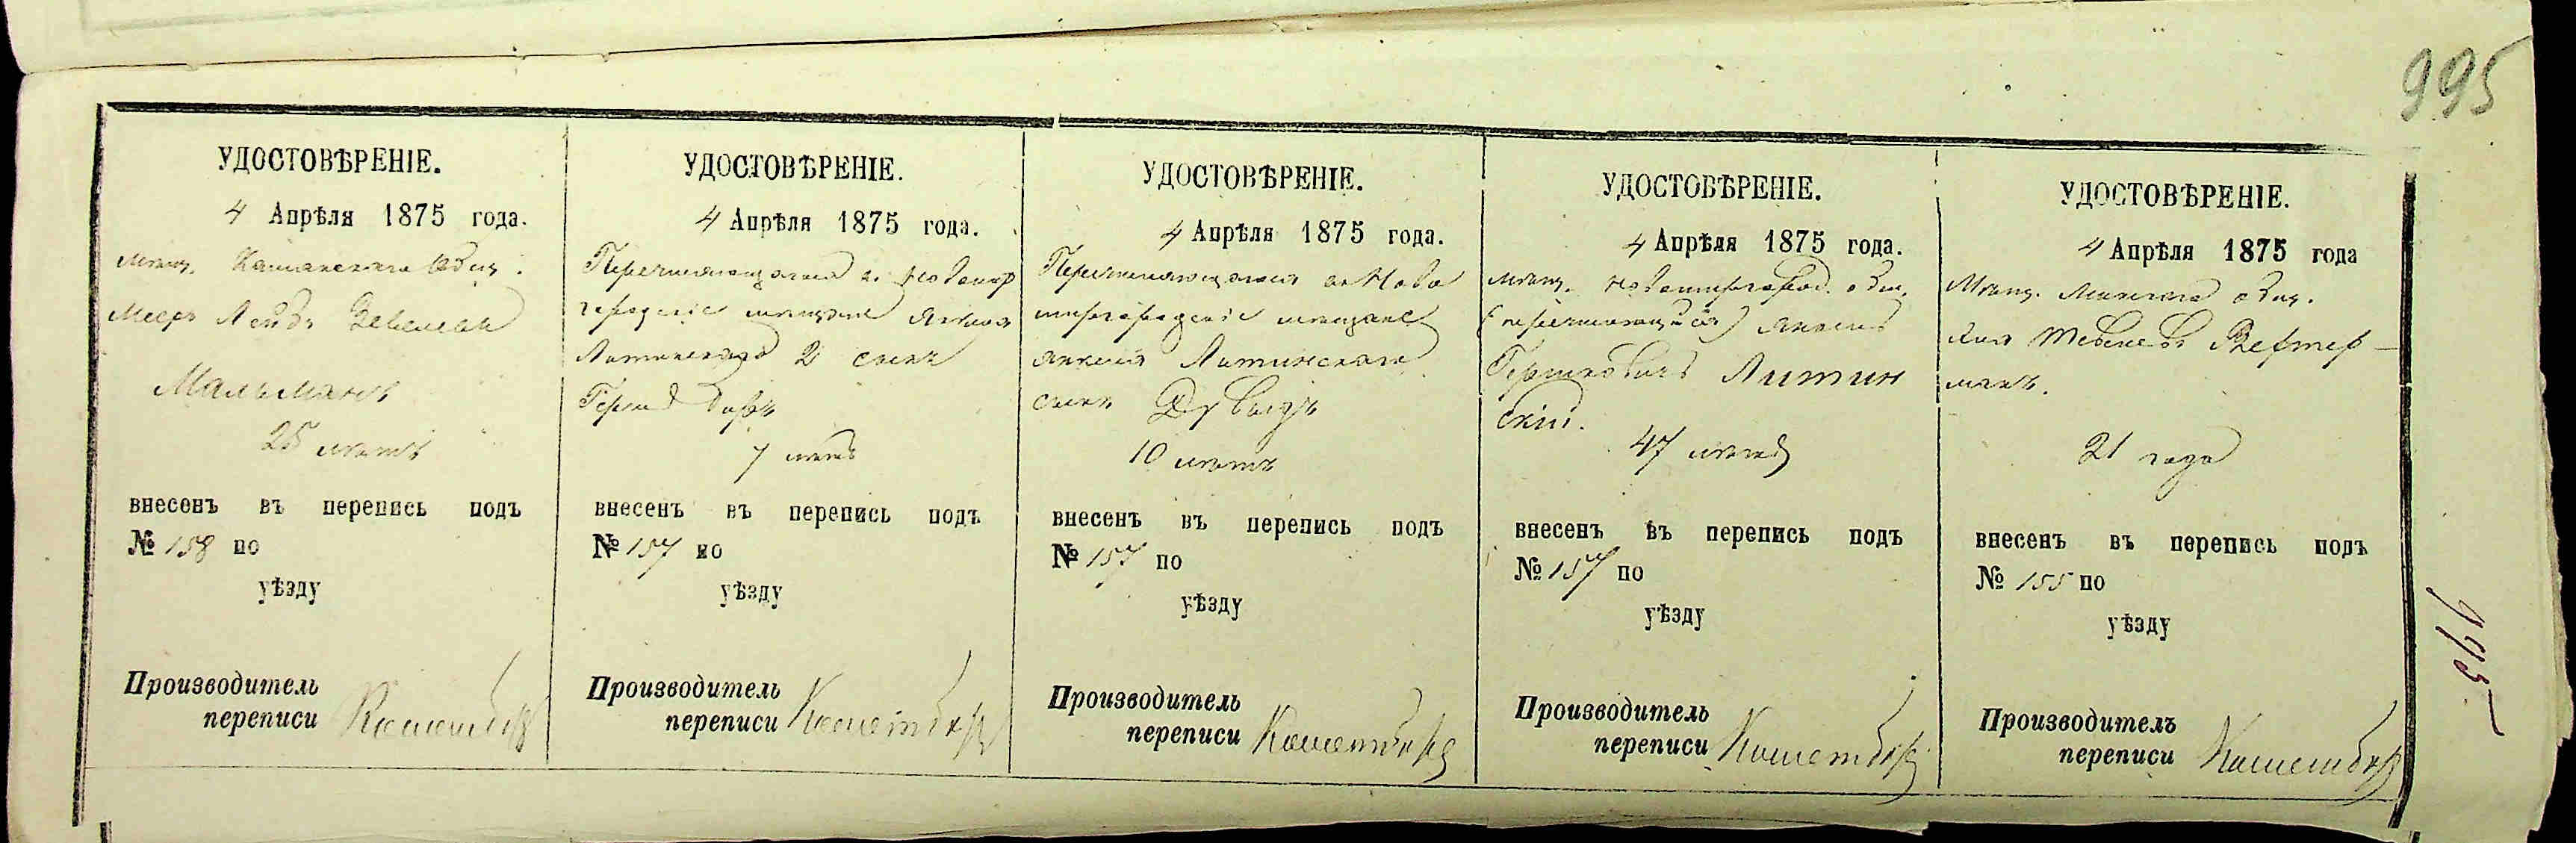 995
УДОСТОВѢРЕНІЕ.
4 Апрѣля 1875 года.
мѣщ. общ.
Мееръ Лейбъ
Мальманъ
25 лѣтъ
внесенъ въ перепись подъ
№ 158 по
уѣзду
Производитель
переписи
УДОСТОВѢРЕНІЕ.
4 Апрѣля 1875 года.
Перечисляющагося въ Новомир
городскіе мѣщане Янкеля
Литинскаго 2 сынъ
Герш
7 лѣтъ
внесенъ въ перепись подъ
№ 157 по
уѣзду
Производитель
переписи
УДОСТОВѢРЕНІЕ.
4 Апрѣля 1875 года.
Перечисляющагося въ Ново
миргородскіе мѣщане
Янкеля Литинскаго
сынъ Дувидъ
10 лѣтъ
внесенъ въ перепись подъ
№ 157 по
уѣзду
Производитель
переписи
УДОСТОВѢРЕНІЕ.
4 Апрѣля 1875 года.
мѣщ. Новомиргород. общ.
(перечисляющійся) Янкель
Гершковичъ Литин
скій.
47 лѣтъ
внесенъ въ перепись подъ
№ 157 по
уѣзду
Производитель
переписи
УДОСТОВѢРЕНІЕ.
4 Апрѣля 1875 года
Мѣщ. общ.
Вертер-
манъ.
21 года
внесенъ въ перепись подъ
№ 155 по
уѣзду
Производитель
переписи
995